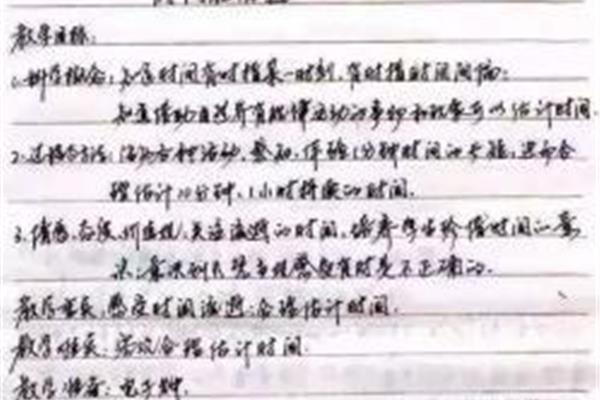 教学目标:
1.科学概念:知道时间有时指某一时刻,有时指时间间隔;
知道借助自然界有规律运动的事物和现象可以估计时间.
2.过程与方法:活动,感知,体验1分钟时间的长短,进而合
理估计10分钟、1小时持续的时间.
3.情感、态度、价值观:关注流逝的时间,培养学生珍惜时间的意
识;意识到只凭主观感觉有时是不正确的.
教学重点:感受时间流逝;合理估计时间.
教学难点:合理估计时间.
教学准备:电子钟.